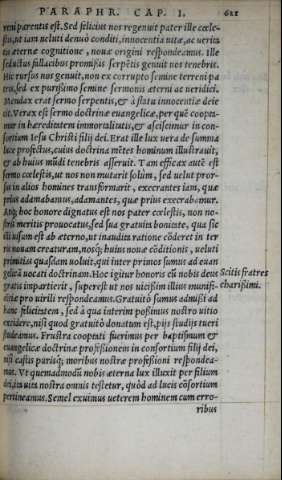 PARAPHR. CAP. I. 621
reni parentis est. Sed felicius nos regenuit pater ille cœle-
stis, ut iam ueluti denuò conditi, innocentia uitæ, ac uerita
tis æternæ cognitione, nouæ origini respondeamus. Ille
seductus fallacibus promissis serpẽtis genuit nos tenebris.
Hic rursus nos genuit, non ex corrupto semine terreni pa
tris, sed ex purissimo semine sermonis æterni ac ueridici.
Mendax erat sermo serpentis, & à statu innocentiæ deie
cit. Verax est sermo doctrinæ euangelicæ, per quẽ coopta-
mur in hæreditatem immortalitatis, & asciscimur in con-
sortium Iesu Christi filij dei. Erat ille lux uera de summa
luce profectus, cuius doctrina mẽtes hominum illustrauit,
& ab huius mũdi tenebris asseruit. Tam efficax autẽ est
sermo cœlestis, ut nos non mutarit solùm, sed uelut pror-
sus in alios homines transformarit, execrantes iam, quæ
prius adamabamus, adamantes, quæ prius execrabamur.
Atq; hoc honore dignatus est nos pater cœlestis, non no-
stris meritis prouocatus, sed sua gratuita bonitate, quia sic
illi uisum est ab æterno, ut inaudita ratione cõderet in ter
ris nouam creaturam, nosq; huius nouæ cõditionis, ueluti
primitias quasdam uoluit, qui inter primos sumus ad euan
gelicã uocati doctrinam. Hoc igitur honoris cũ nobis deus
gratis impartierit, superest ut nos uicissim illius munifi-
centiæ pro uirili respondeamus. Gratuitò sumus admissi ad
hanc felicitatem, sed à qua interim possimus nostro uitio
excidere, nisi quod gratuitò donatum est, pijs studijs tueri
studeamus. Frustra cooptati fuerimus per baptismum &
euangelicæ doctrinæ professionem in consortium filij dei,
nisi castis purisq; moribus nostræ professioni respondea-
mus. Vt quemadmodũ nobis æterna lux illuxit per filium
dei, ita uita nostra omnis testetur, quòd ad lucis cõsortium
pertineamus. Semel exuimus ueterem hominem cum erro-
ribus
Scitis fratres
charissimi.